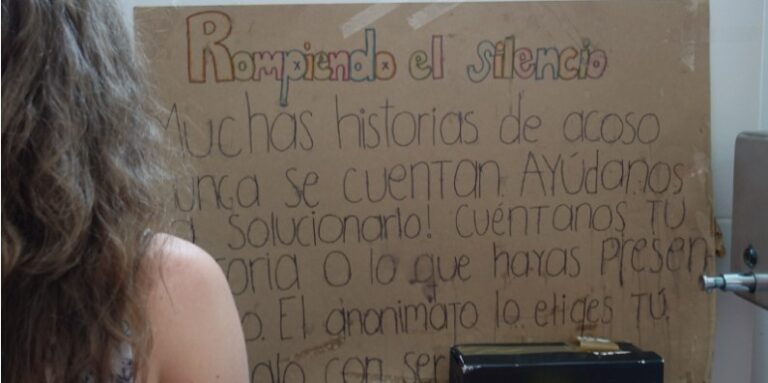 Rompiendo el silencio
Muchas historias de acoso
unca se cuentan. Ayúdanos
a solucionarlo! Cuéntanos tu
toria o lo que hayas presen
o. El anonimato lo eliges tú.
alo con ser